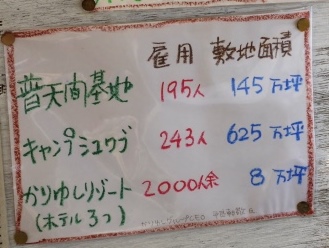 雇用 敷地面積
普天間基地 195人 145万坪
キャンプシュワブ 243人 625万坪
かりゆしリゾート 2000人余 8万坪
(ホテル3つ)
かりゆしグループCEO